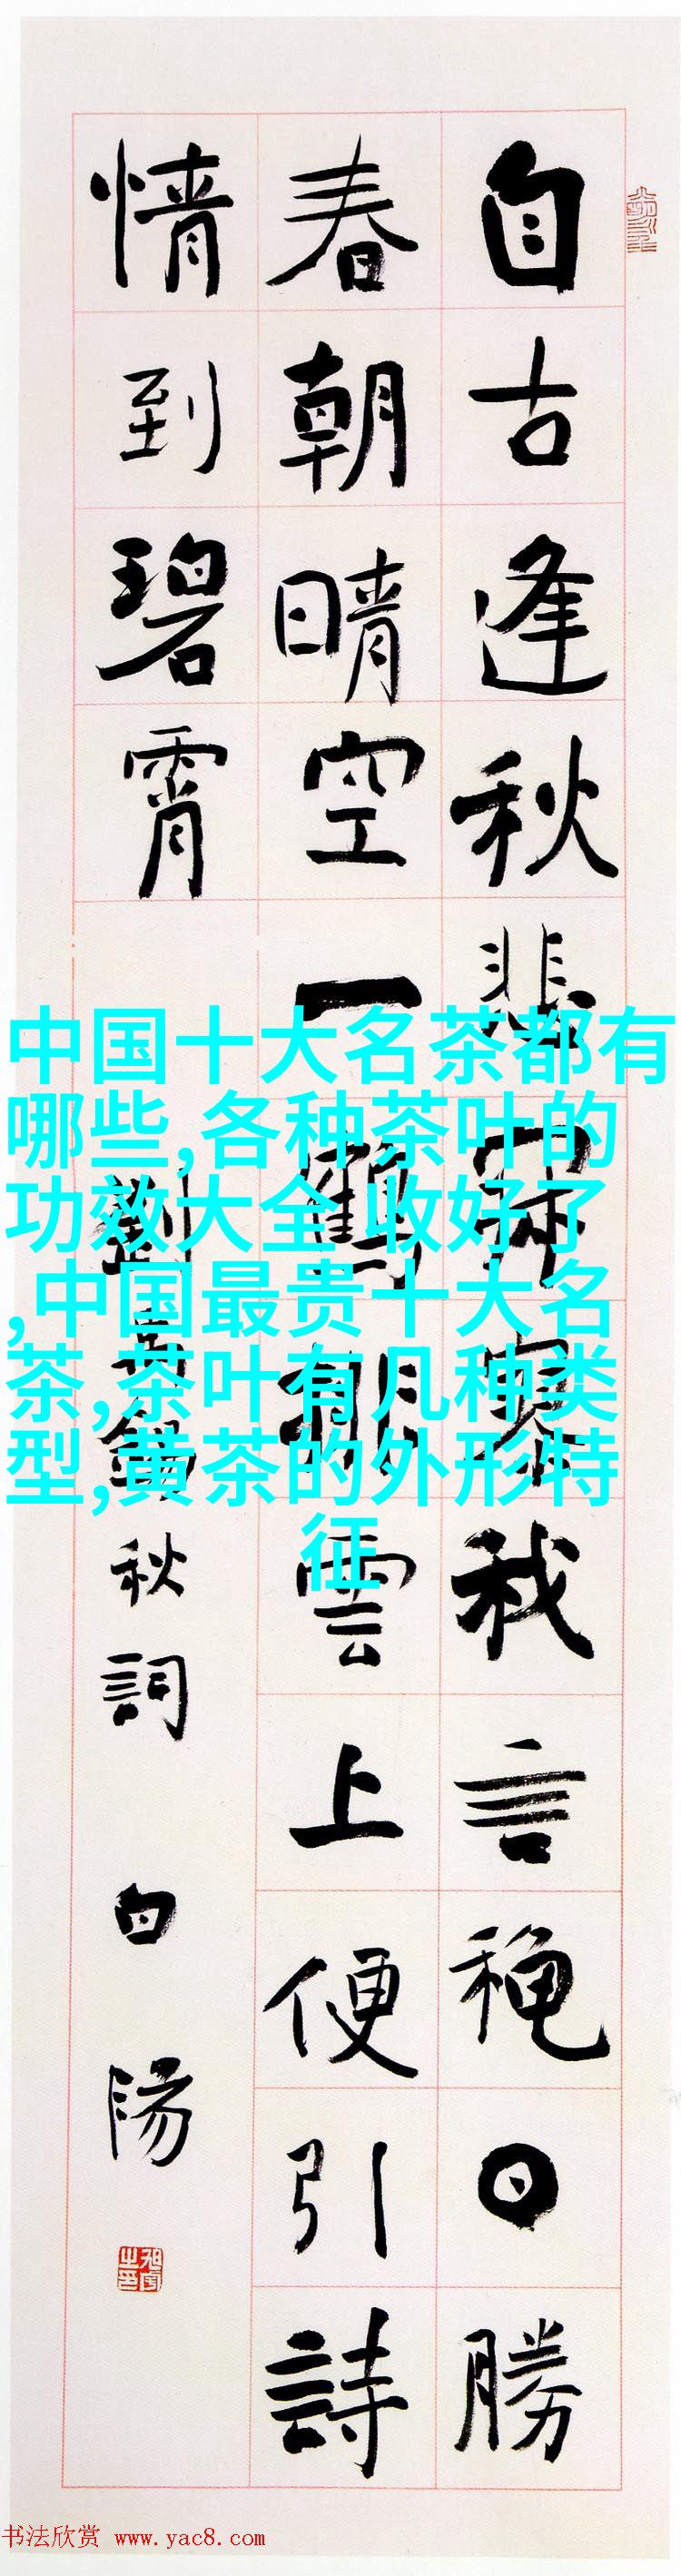 自古逢秋悲寂寥我言穐日勝
春朝晴空一鶴排雲上便引詩
情到碧霄
劉禹錫秋詞 白陽
中国十大名茶都有
哪些,各种茶叶的
功效大全 收好了
,中国最贵十大名
茶,茶叶有几种类
型,黄茶的外形特
征
书法欣赏 www.yac8.com